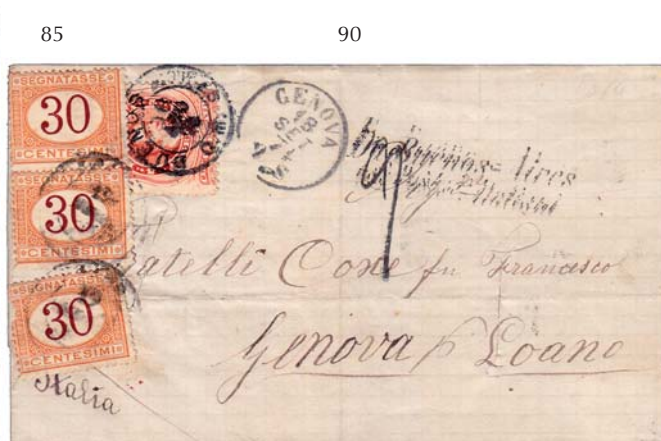 85 90
SEGNATASSE
30
CENTESIMI
SEGNATASSE
30
CENTESIMI
SEGNATASSE
30
CENTESIMI
BUENOS
GENOVA
18
SET
Buenos-Aires
9
Fratelli Fu Francesco
Genova p Loano
Italia